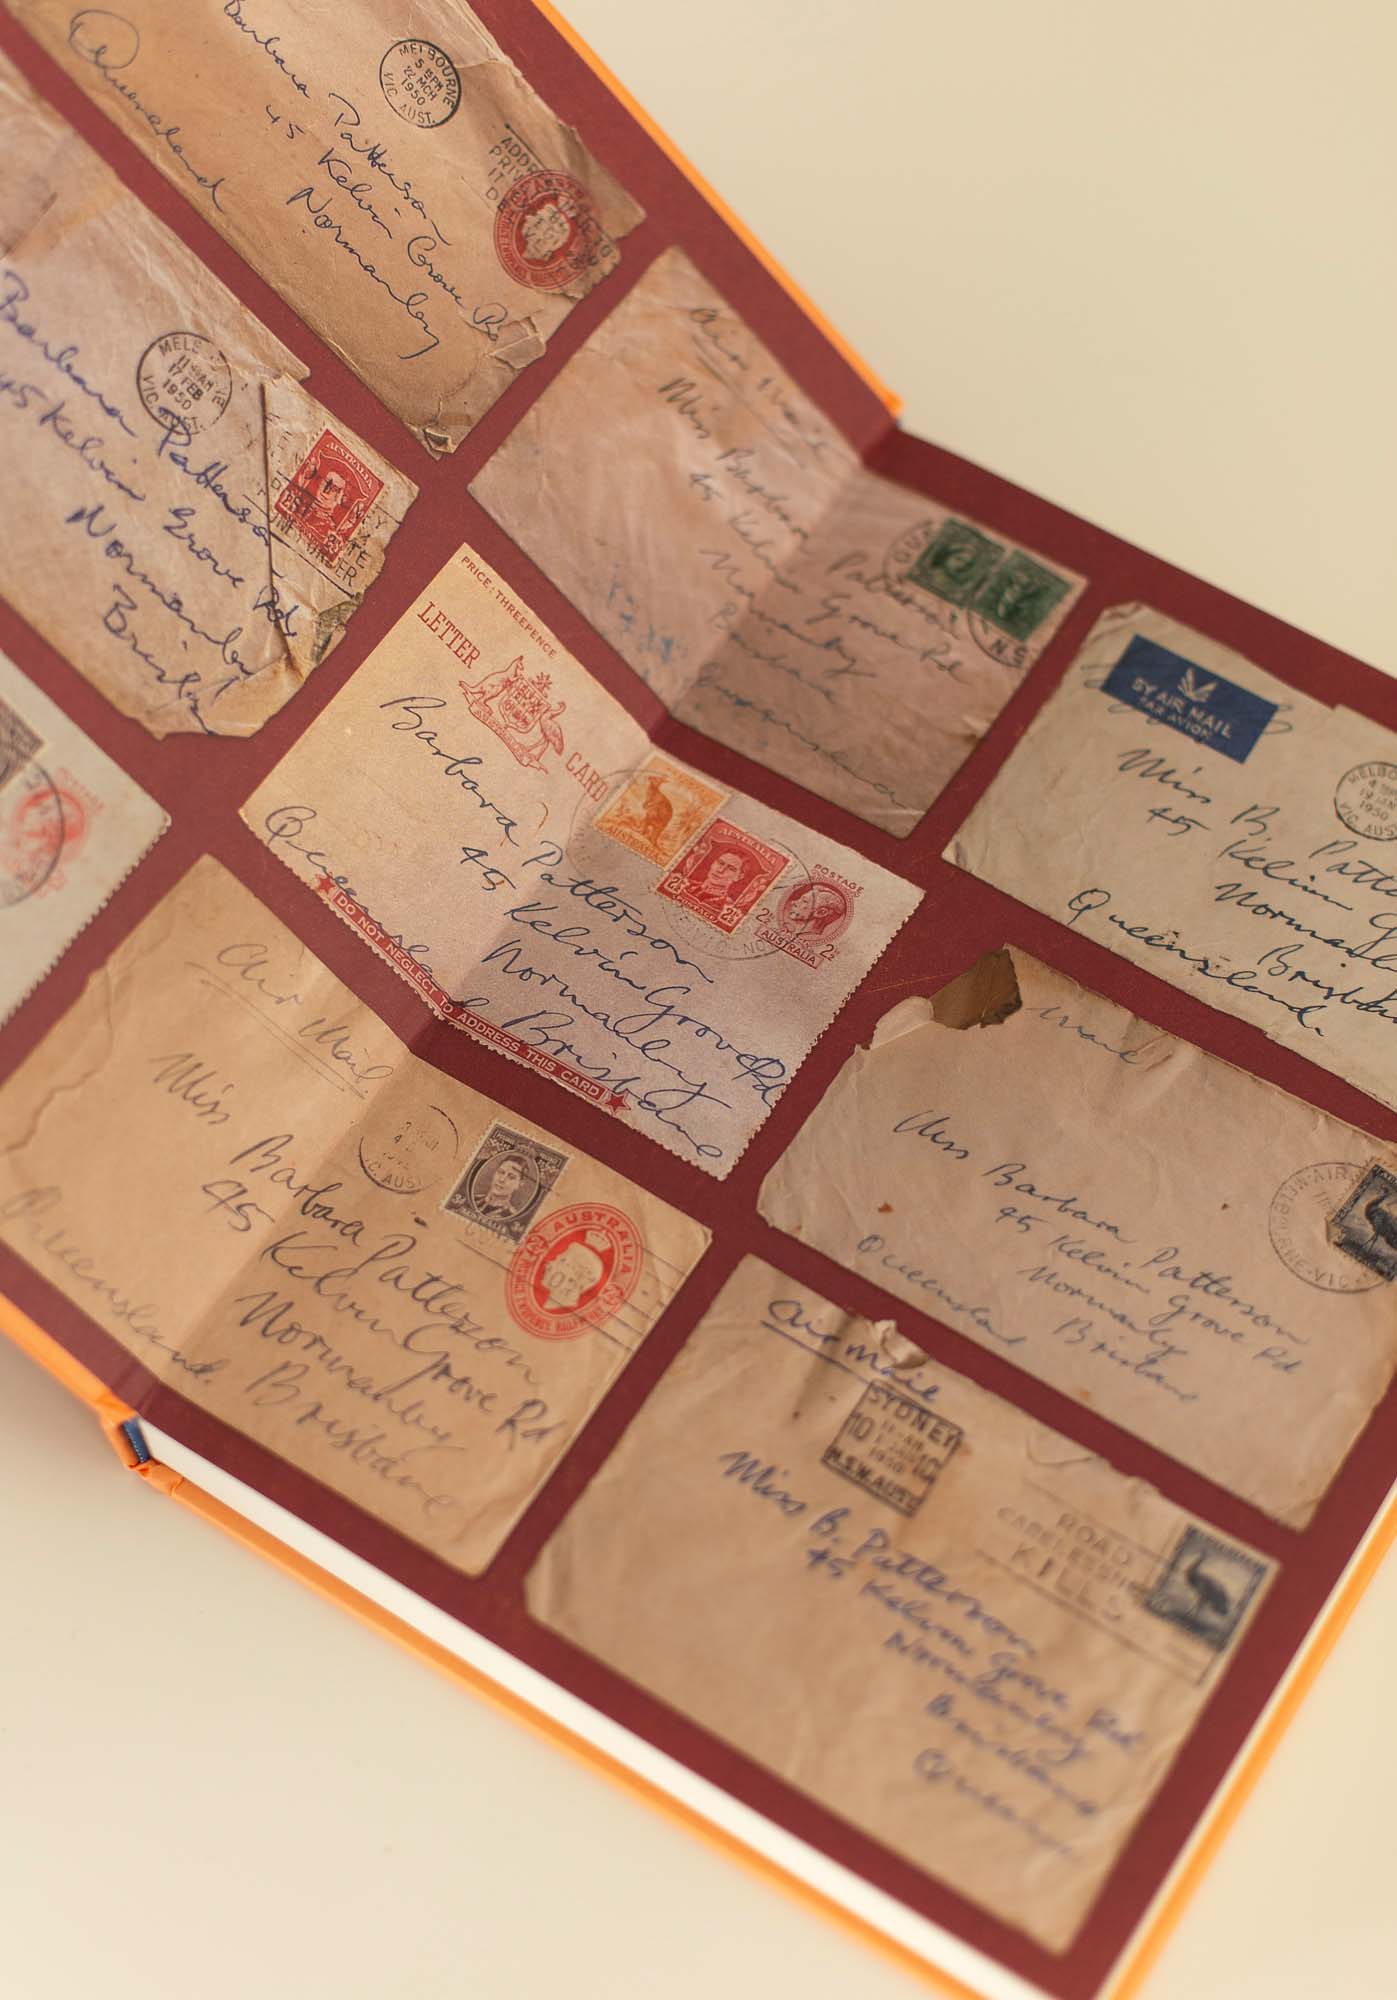 Barbara Patterson
45 Kelvin Grove Rd
Normanby
Queensland
MELBOURNE
5 15PM
22 MCH
1950
VIC. AUST.
Barbara Patterson
45 Kelvin Grove Rd
Normanby
Brisbane
17 FEB
1950
VIC. AUST.
AUSTRALIA
2½D
Air Mail
Miss Barbara Patterson
45 Kelvin Grove Rd
Normanby
Brisbane
Queensland
PRICE: THREEPENCE
LETTER CARD
Barbara Patterson
45 Kelvin Grove Rd
Normanby
Brisbane
Queensland
AUSTRALIA
2½D
POSTAGE
2½ 2½
AUSTRALIA
DO NOT NEGLECT TO ADDRESS THIS CARD
BY AIR MAIL
PAR AVION
Miss B Patte
45 Kelvin G
Norman
Brisba
Queensland.
MELBO
19 JAN
1950
VIC. AUS
Air Mail
Miss Barbara Patterson
45 Kelvin Grove Rd
Normanby
Brisbane
Queensland.
C. AUST
AUSTRALIA
AUSTRALIA
mail
Miss Barbara Patterson
45 Kelvin Grove Rd
Normanby
Brisbane
Queensland
Air Mail
SYDNEY
10
1950
N.S.W. AUST
ROAD
CARELESSN
KILLS
Miss B. Patterson
45 Kelvin Grove Rd
Normanby
Brisbane
Queensl